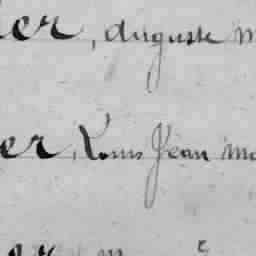 er, Auguste m
er, Louis Jean ma
er